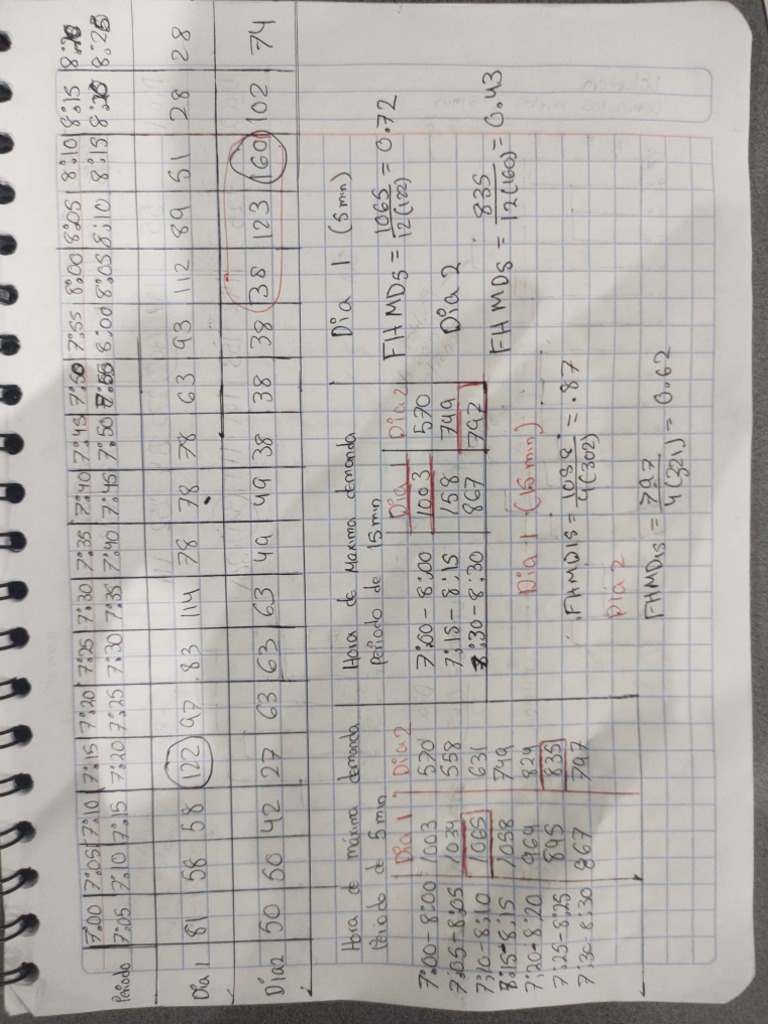 7:00 7:05 7:10 7:15 7:20 7:25 7:30 7:35 7:40 7:45 7:50 7:55 8:00 8:05 8:10 8:15 8:20
Periodo 7:05 7:10 7:15 7:20 7:25 7:30 7:35 7:40 7:45 7:50 8:00 8:05 8:10 8:15 8:20 8:25
Día 1 81 58 58 122 97 83 114 78 78 78 63 93 112 89 51 28 28
Día 2 50 50 42 27 63 63 63 49 49 38 38 38 38 123 160 102 74
Hora de máxima demanda
Periodo de 5 min
Día 1 Día 2
7:00-8:00 1003 570
7:05-8:05 1034 558
7:10-8:10 1065 631
8:15-8:15 1058 749
7:20-8:20 964 824
7:25-8:25 895 835
7:30-8:30 867 797
Hora de Maxima demanda
periodo de 15 min
Día 1 Día 2
7:00-8:00 1003 570
7:15-8:15 158 749
7:30-8:30 867 797
Día 1 (15 min)
FHMD15 = 1038 / 4(302) = .87
Día 2
FHMD15 = 797 / 4(321) = 0.62
Día 1 (5 min)
FHMD5 = 1065 / 12(122) = 0.72
Día 2
FHMD5 = 835 / 12(160) = 0.43